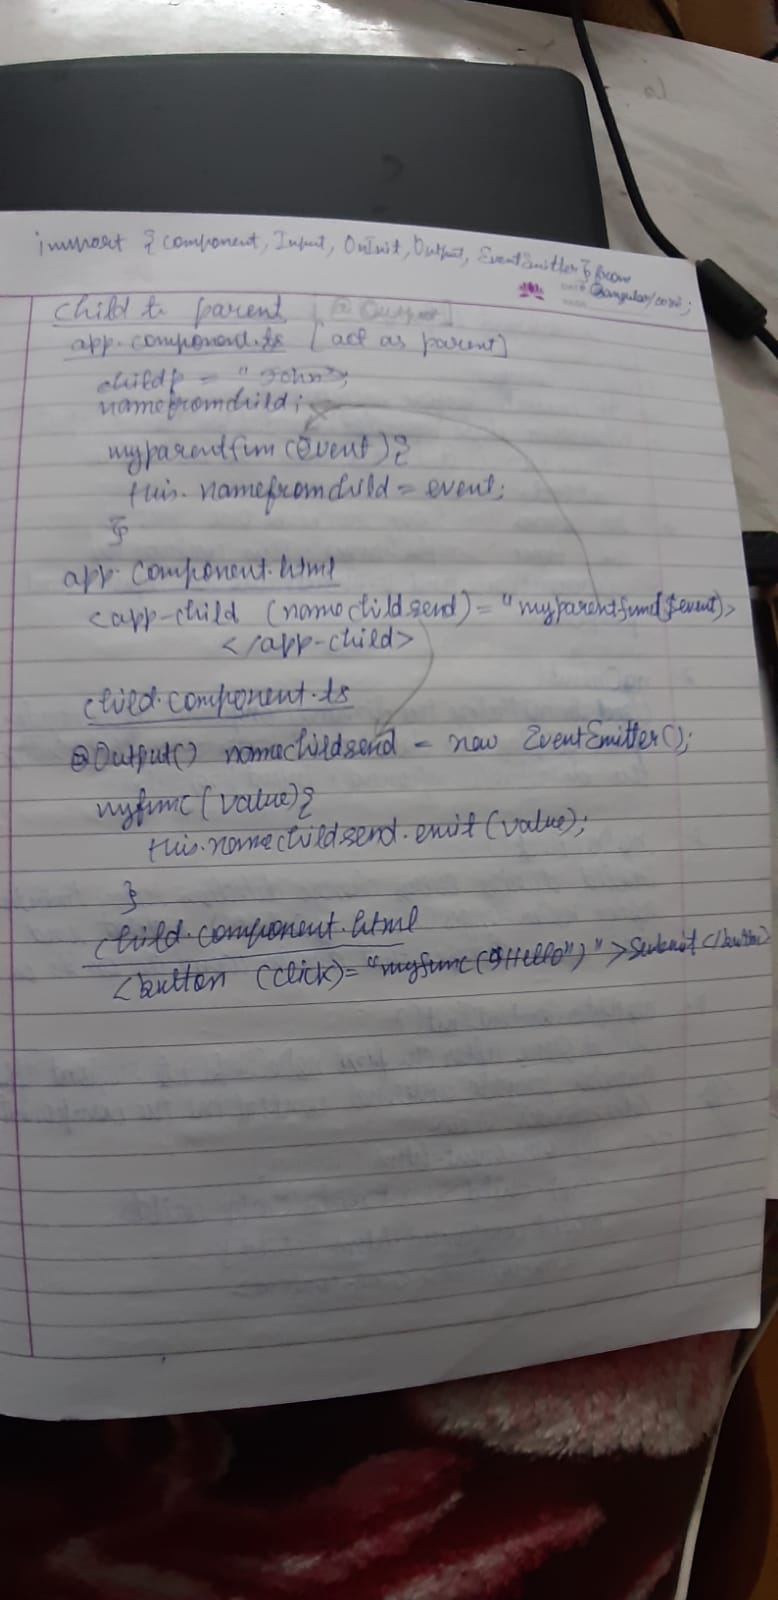 import { component, Input, OnInit, Output, EventEmitter } from
@angular/core;
child to parent [@Output]
app.component.ts [act as parent]
childp = "John";
namefromchild;
myparentfun(event){
this.namefromchild = event;
}
app.component.html
<app-child (namechildsend) = "myparentfun($event)>
</app-child>
child.component.ts
@Output() namechildsend = new EventEmitter();
myfunc(value){
this.namechildsend.emit(value);
}
child.component.html
<button (click)="myfunc("Hello")">Submit</button>